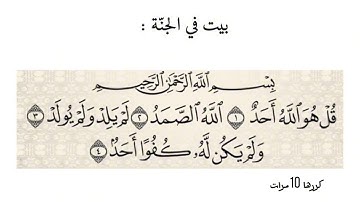 بيت في الجنّة :
بِسْمِ اللَّهِ الرَّحْمَٰنِ الرَّحِيمِ
قُلْ هُوَ اللَّهُ أَحَدٌ ١ اللَّهُ الصَّمَدُ ٢ لَمْ يَلِدْ وَلَمْ يُولَدْ ٣
وَلَمْ يَكُن لَّهُ كُفُوًا أَحَدٌ ٤
كررها 10 مرات